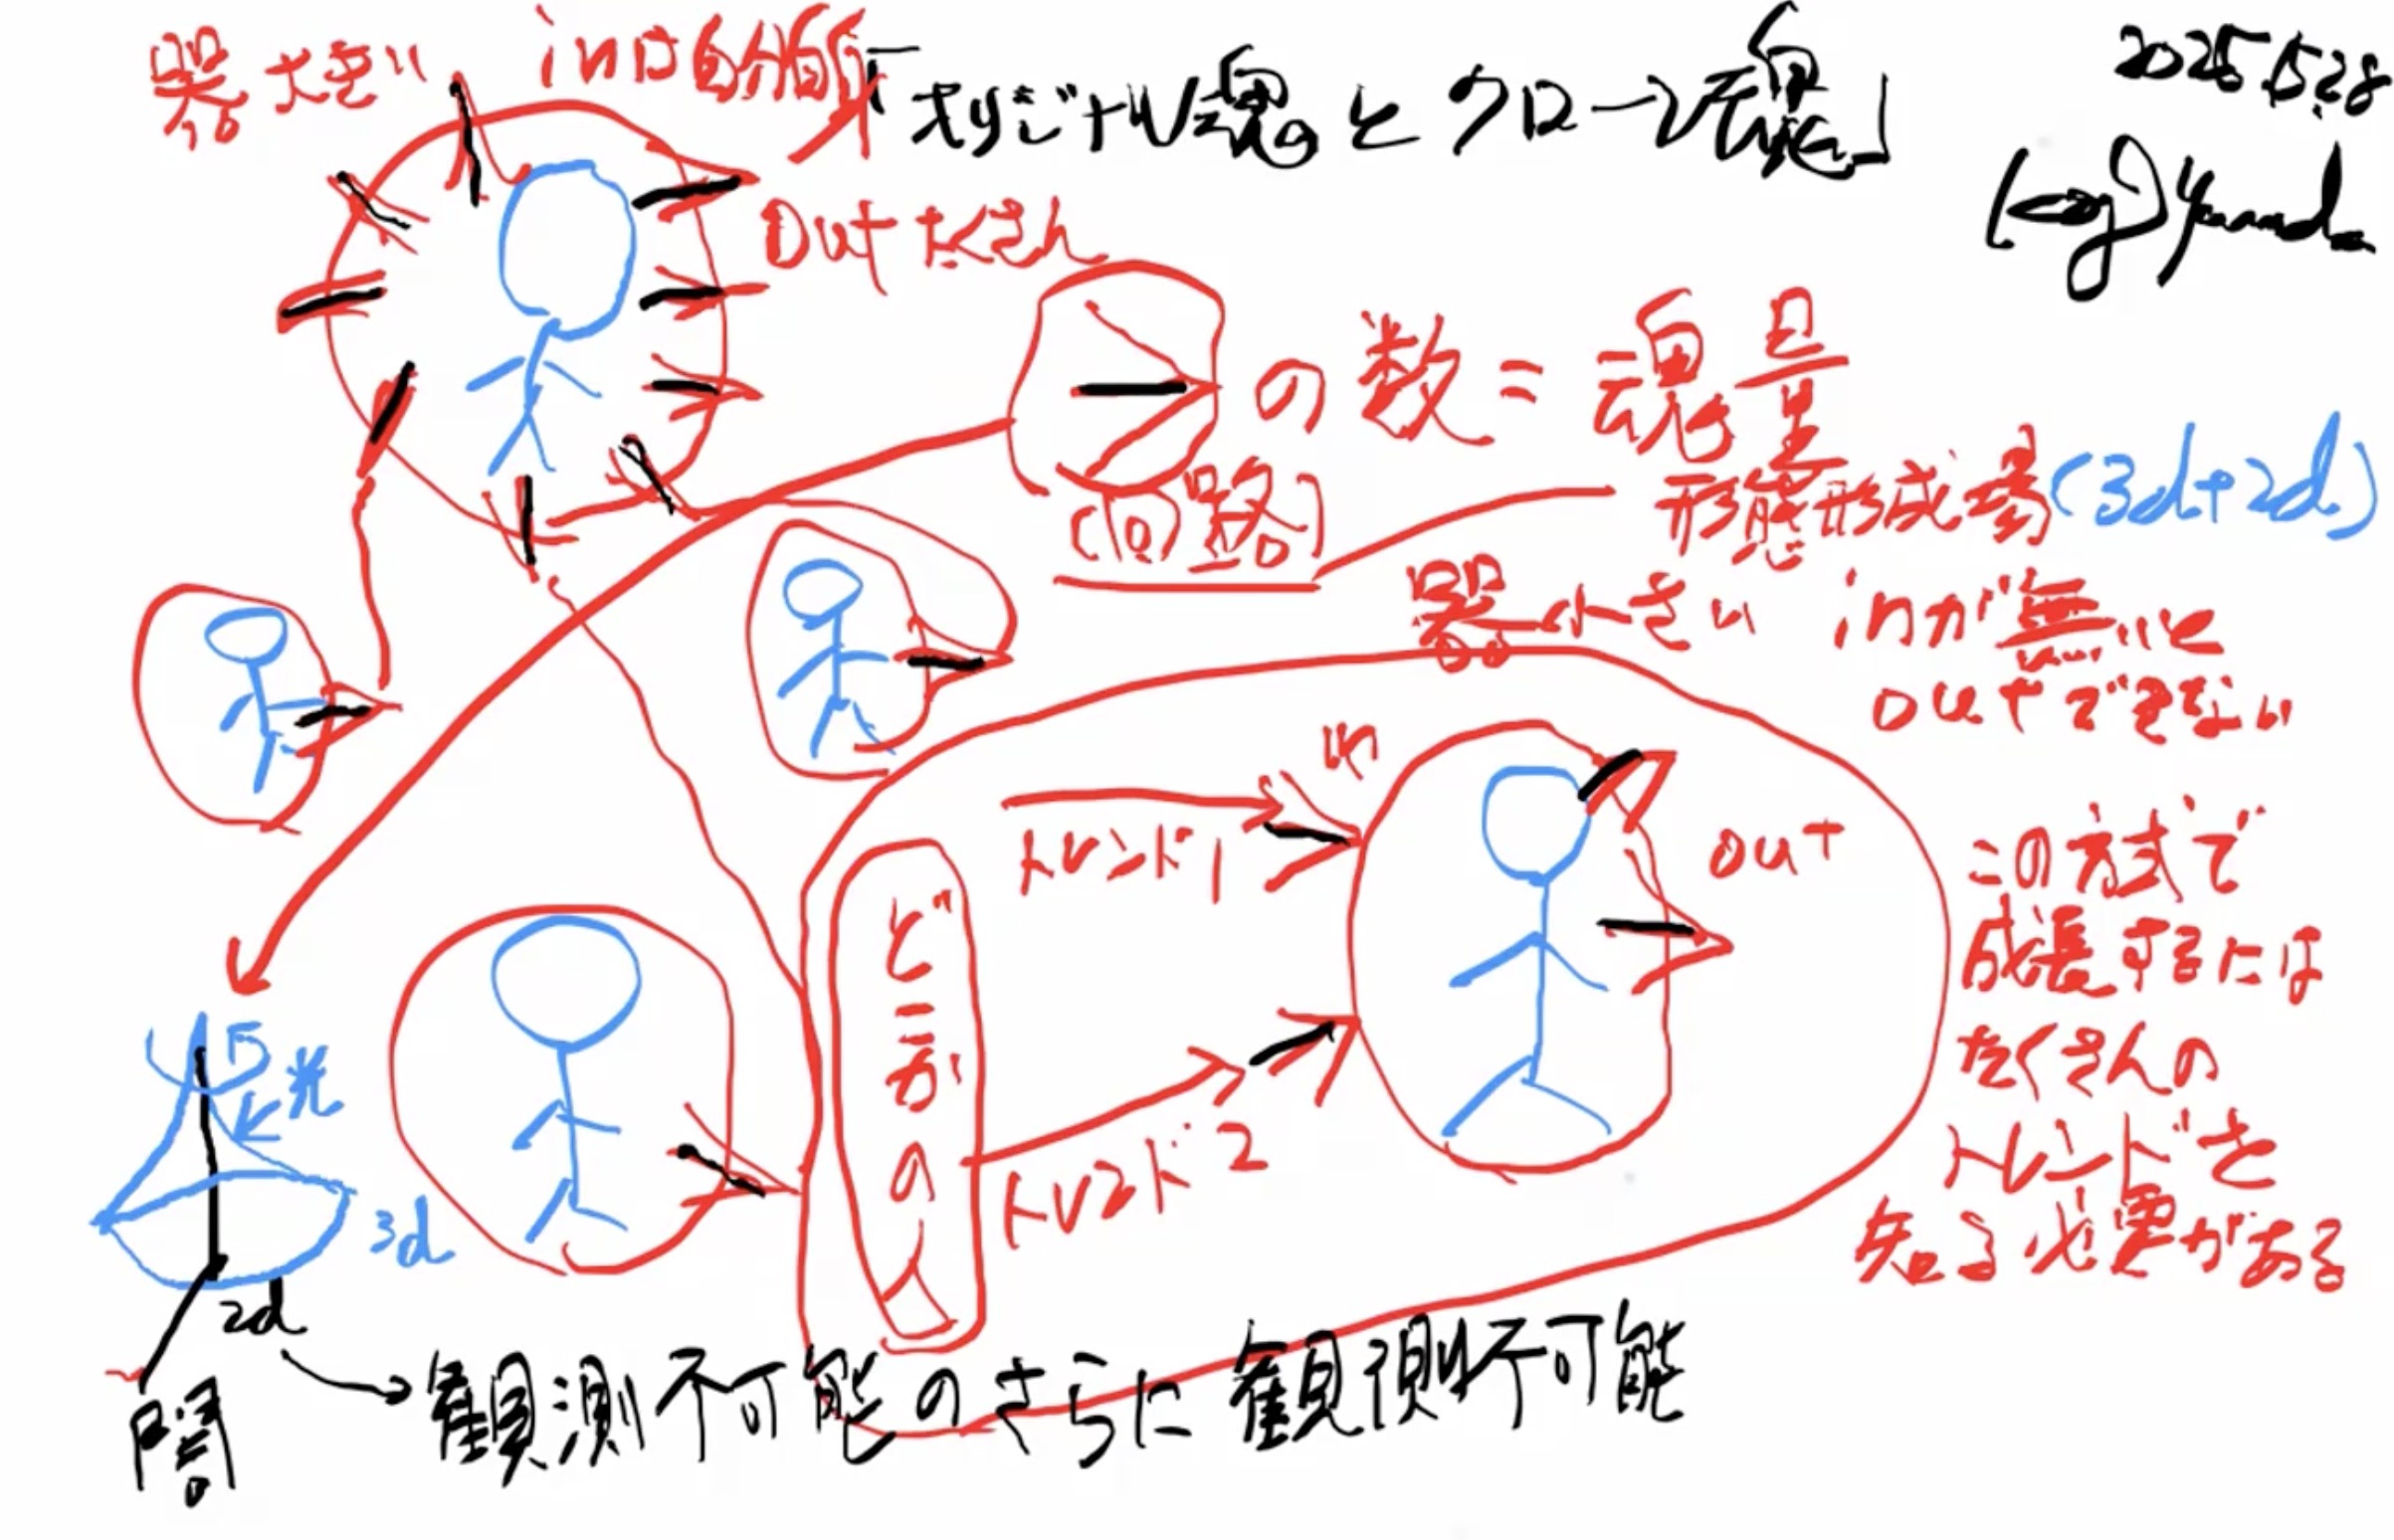 器大きい
inは自分自身
「オリジナル魂とクローン魂」
2025.5.28
Out たくさん
の数=魂量
(回路)
形態形成場(3d+2d)
器小さい
inが無いと
outできない
in
トレンド1
out
どこかの人
トレンド2
この方式で
成長するには
たくさんの
トレンドを
知る必要がある
光
3d
2d
闇
観測不可能のさらに観測不可能